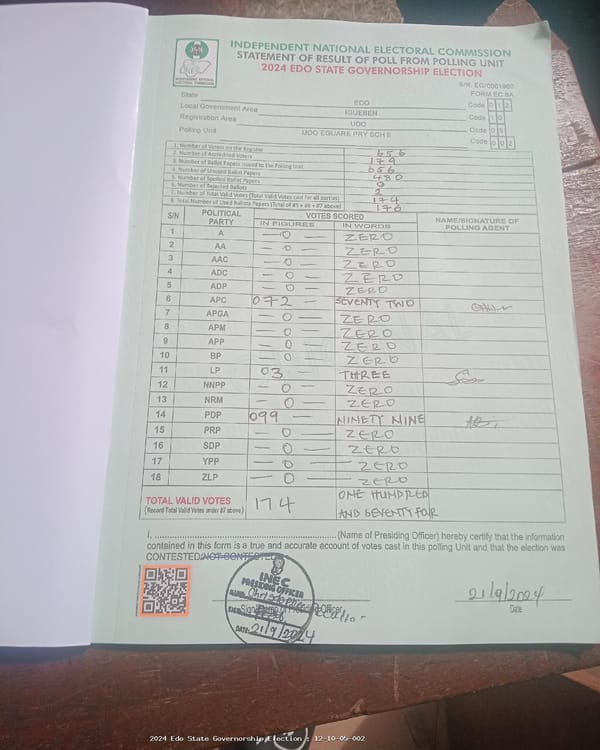 INDEPENDENT NATIONAL ELECTORAL COMMISSION
STATEMENT OF RESULT OF POLL FROM POLLING UNIT
2024 EDO STATE GOVERNORSHIP ELECTION
FORM EC 8A
State EDO Code 0 1 2
Local Government Area IGUEBEN Code 1 0
Registration Area UDO Code 0 5
Polling Unit UDO EGUARE PRY SCH II Code 0 0 2
1. Number of Voters on the Register 656
2. Number of Accredited Voters 179
3. Number of Ballot Papers Issued to the Polling Unit 656
4. Number of Unused Ballot Papers 480
5. Number of Spoiled Ballot Papers 0
6. Number of Rejected Ballots 2
7. Number of Total Valid Votes (Total Valid Votes cast for all parties) 174
8. Total Number of Used Ballots Papers (Total of #5 + #6 + #7 above) 176
S/N POLITICAL PARTY VOTES SCORED NAME/SIGNATURE OF POLLING AGENT
IN FIGURES IN WORDS
1 A - 0 - ZERO
2 AA - 0 - ZERO
3 AAC - 0 - ZERO
4 ADC - 0 - ZERO
5 ADP - 0 - ZERO
6 APC 072 - SEVENTY TWO
7 APGA - 0 - ZERO
8 APM - 0 - ZERO
9 APP - 0 - ZERO
10 BP - 0 - ZERO
11 LP 03 - THREE
12 NNPP - 0 - ZERO
13 NRM - 0 - ZERO
14 PDP 099 - NINETY NINE
15 PRP - 0 - ZERO
16 SDP - 0 - ZERO
17 YPP - 0 - ZERO
18 ZLP - 0 - ZERO
TOTAL VALID VOTES 174 ONE HUNDRED
(Record Total Valid Votes under #7 above) AND SEVENTY FOUR
I, .................... (Name of Presiding Officer) hereby certify that the information
contained in this form is a true and accurate account of votes cast in this polling Unit and that the election was
CONTESTED/NOT CONTESTED
INEC
PRESIDING OFFICER
NAME:
DATE: 21/9/2024
21/9/2024
Date
2024 Edo State Governorship Election : 12-10-05-002